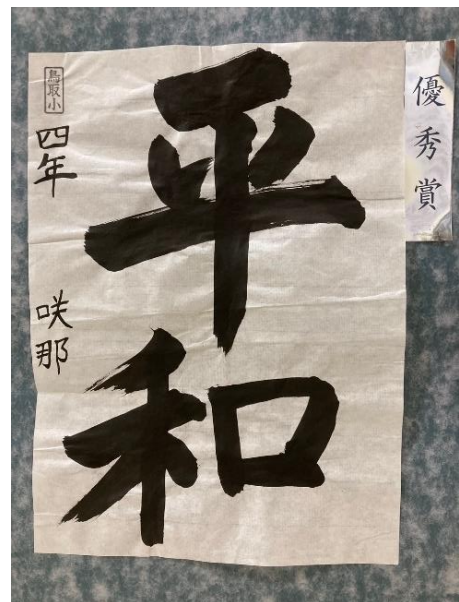 優秀賞
平和
鳥取小
四年
咲那